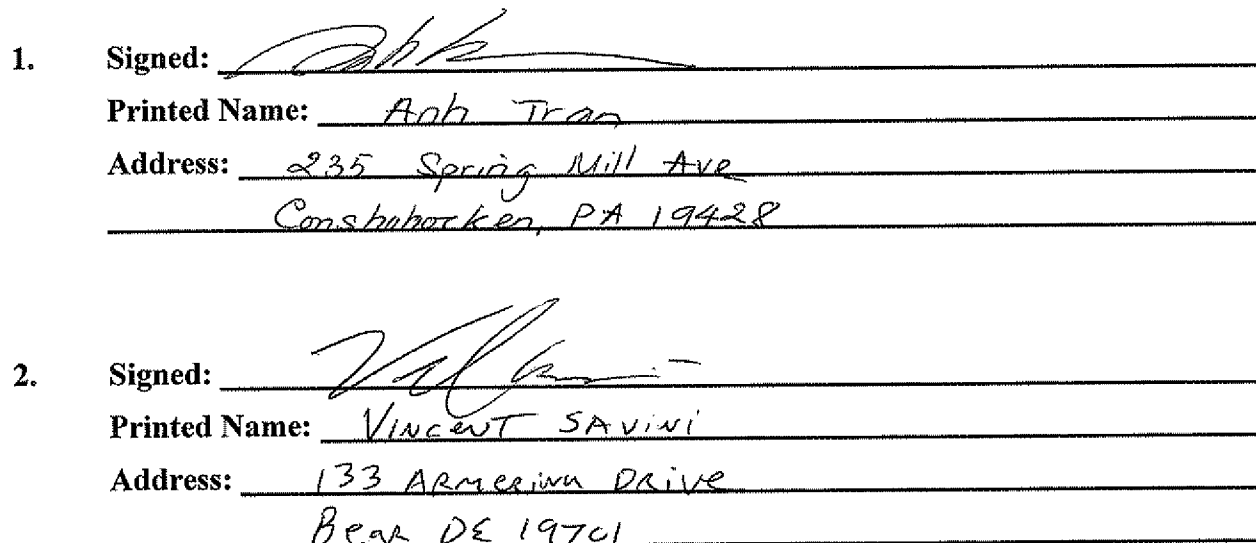 1. Signed:
Printed Name: Anh Tran
Address: 235 Spring Mill Ave
Conshohocken, PA 19428
2. Signed:
Printed Name: VINCENT SAVINI
Address: 133 DRIVE
Bear DE 19701